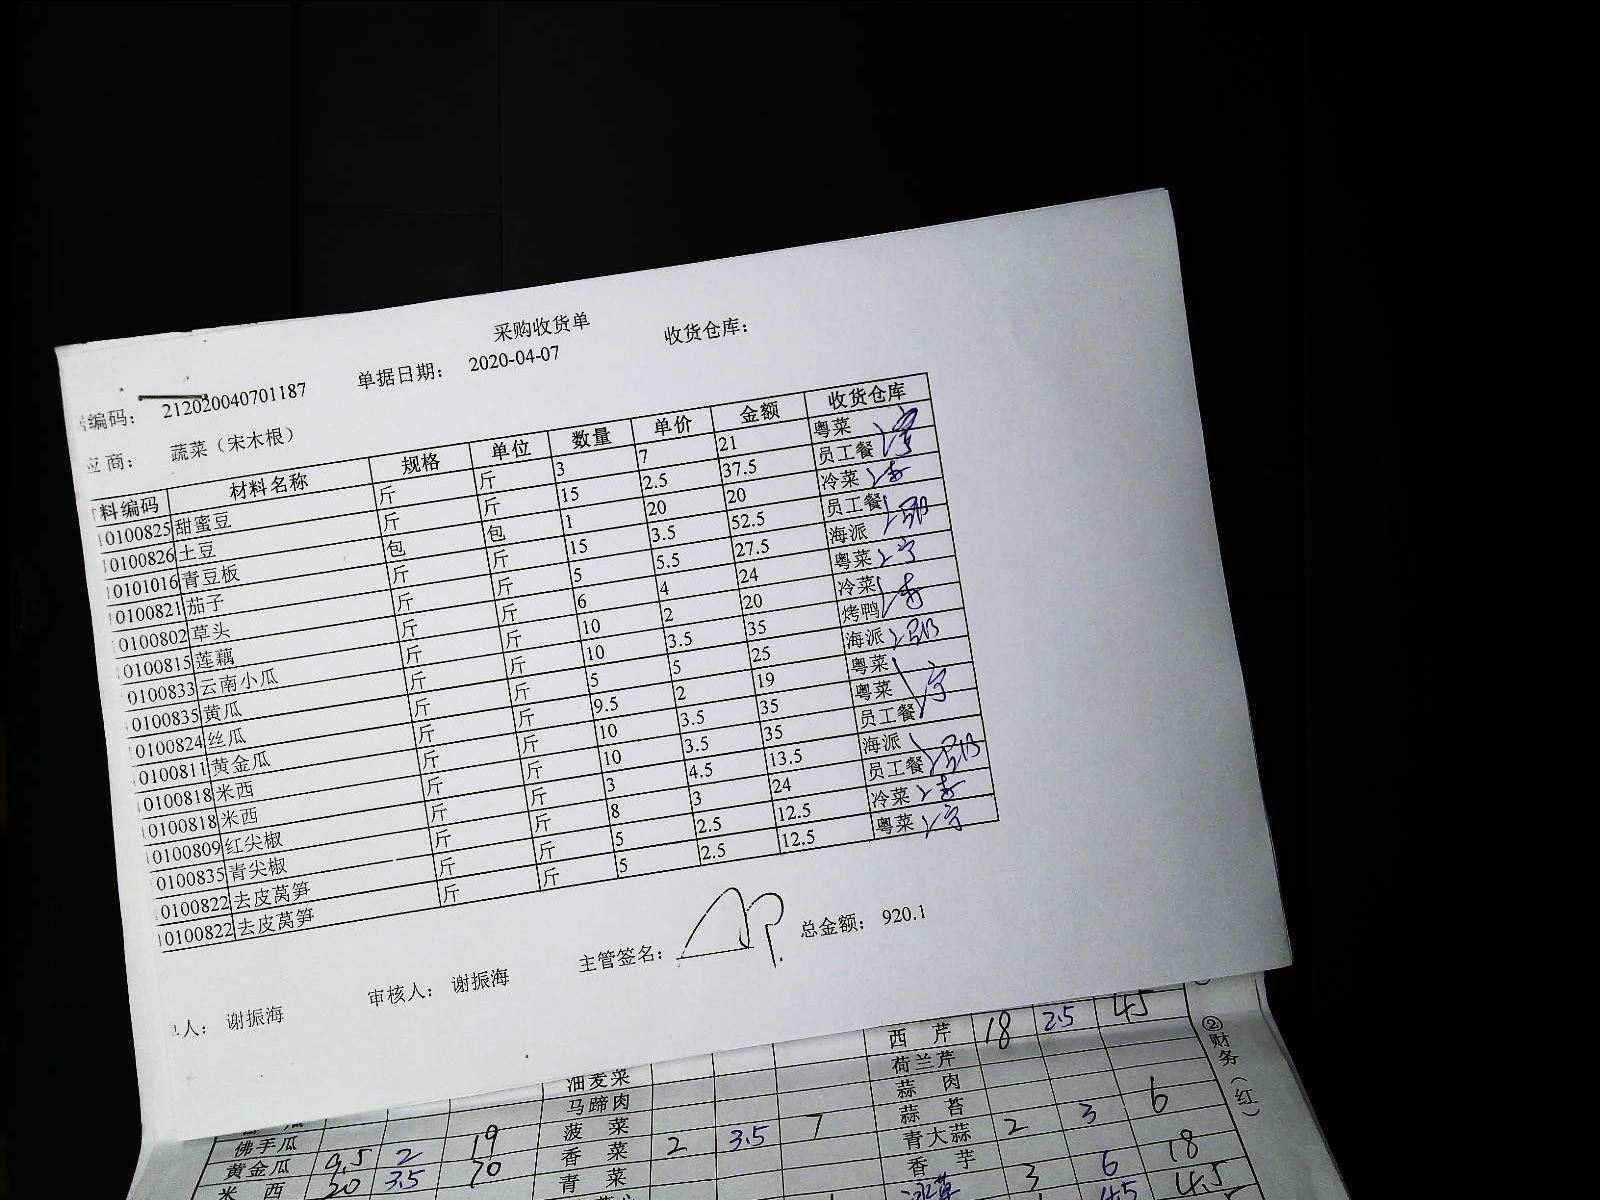 采购收货单
编码： 212020040701187 单据日期： 2020-04-07 收货仓库：
应商： 蔬菜（宋木根）
料编码 材料名称 规格 单位 数量 单价 金额 收货仓库
10100825 甜蜜豆 斤 斤 3 7 21 粤菜
10100826 土豆 斤 斤 15 2.5 37.5 员工餐
10101016 青豆板 包 包 1 20 20 冷菜
10100821 茄子 斤 斤 15 3.5 52.5 员工餐
10100802 草头 斤 斤 5 5.5 27.5 海派
10100815 莲藕 斤 斤 6 4 24 粤菜
0100833 云南小瓜 斤 斤 10 2 20 冷菜
0100835 黄瓜 斤 斤 10 3.5 35 烤鸭
0100824 丝瓜 斤 斤 5 5 25 海派
10100811 黄金瓜 斤 斤 9.5 2 19 粤菜
10100818 米西 斤 斤 10 3.5 35 粤菜
10100818 米西 斤 斤 10 3.5 35 员工餐
10100809 红尖椒 斤 斤 3 4.5 13.5 海派
0100835 青尖椒 斤 斤 8 3 24 员工餐
10100822 去皮莴笋 斤 斤 5 2.5 12.5 冷菜
10100822 去皮莴笋 斤 斤 5 2.5 12.5 粤菜
人： 谢振海 审核人： 谢振海 主管签名： 总金额： 920.1
西芹 18 2.5 45
油麦菜 荷兰芹
马蹄肉 蒜肉
佛手瓜 菠菜 蒜苔
黄金瓜 9.5 2 19 香菜 2 3.5 7 青大蒜 2 3 6
米西 20 3.5 70 青菜 香芋 3 6 18
4.5 4.5
②财务（红）